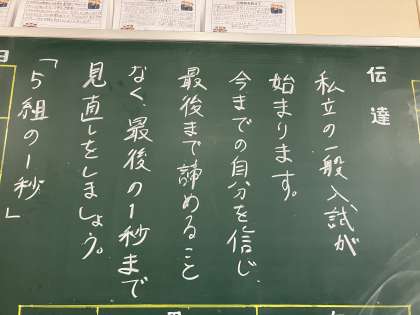 伝達
私立の一般入試が
始まります。
今までの自分を信じ、
最後まで諦めること
なく、最後の1秒まで
見直しをしましょう。
「5組の1秒」